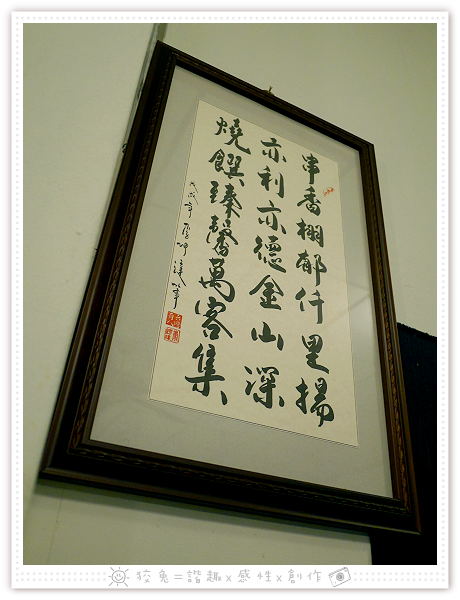 串香棚郁仟里揚
亦利亦德金山深
燒饌臻馨萬客集
狡兔=諧趣x感性x創作